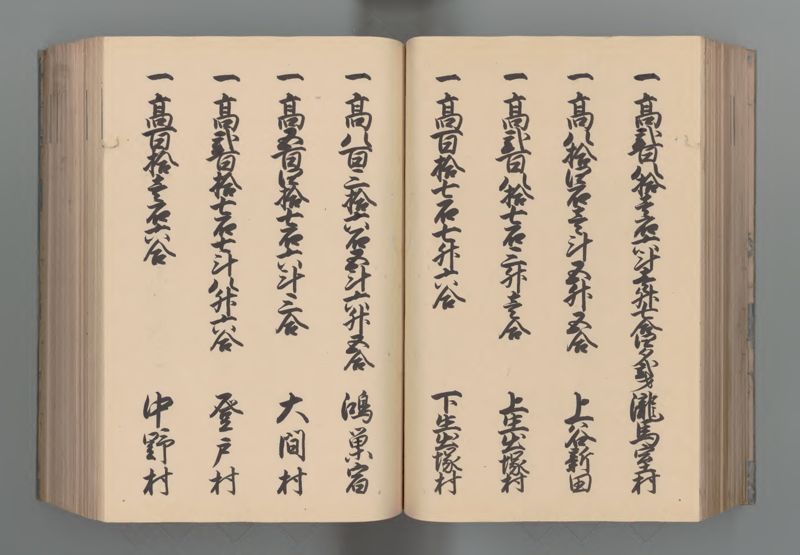 一高弐百八拾壱石六斗壱升七合 瀧馬室村
一高八拾四石壱斗五升五合 上谷新田
一高弐百八拾七石二升壱合 上生出塚村
一高百拾七石七升六合 下生出塚村
一高八百二拾六石五斗六升五合 鴻巣宿
一高五百四拾七石六斗二合 大間村
一高弐百拾七石七斗八升六合 登戸村
一高百拾壱石六合 中野村